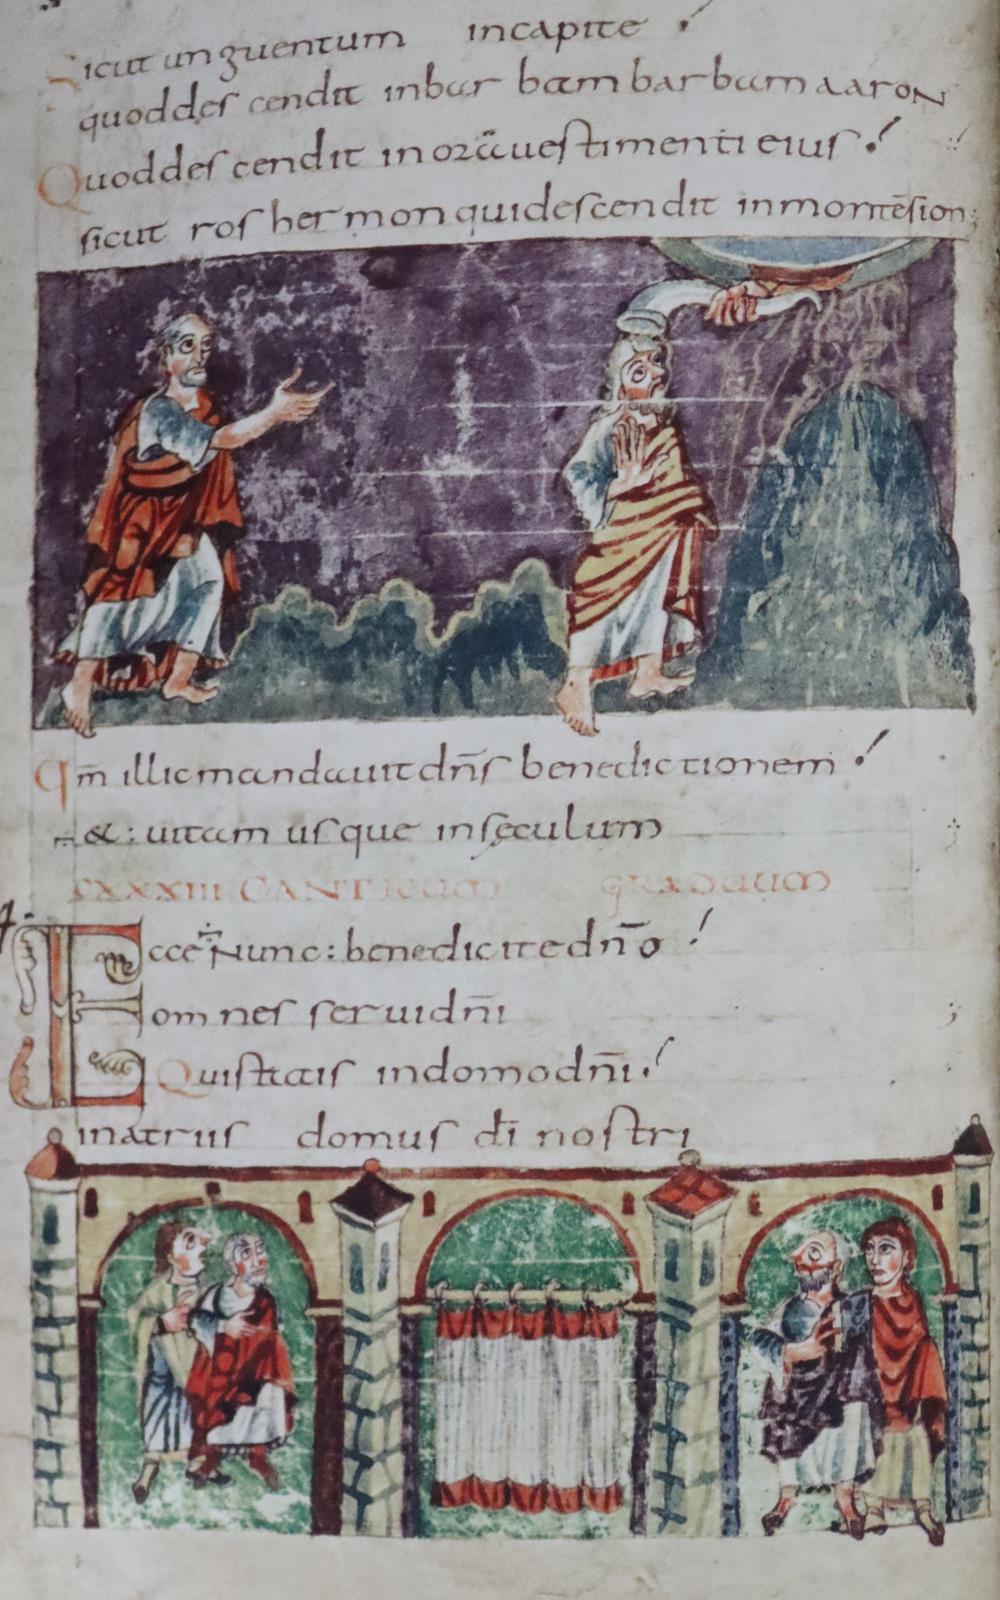 Sicut unguentum incapite
quoddescendit inbar bam barbam aaron
Quoddescendit inorā uestimenti eius
sicut ros hermon quidescendit inmontēsion;
Qm̄ illicmandauit dn̄s benedictionem
÷ &: uitam usque insęculum
CXXXIII CANTICUM GRADUUM
Ecce ÷ Nunc: benedicitedn̄o
omnes seruidn̄i
Quistatis indomodn̄i.
inatriis domus dī nostri